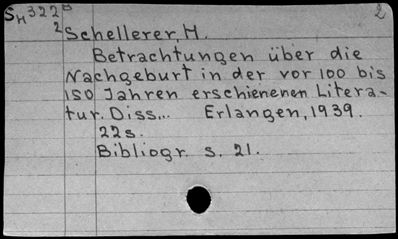 SH322B 2
2 Schellerer, H.
Betrachtungen über die
Nachgeburt in der vor 100 bis
150 Jahren erschienenen Litera-
tur. Diss... Erlangen, 1939.
22s.
Bibliogr. s. 21.